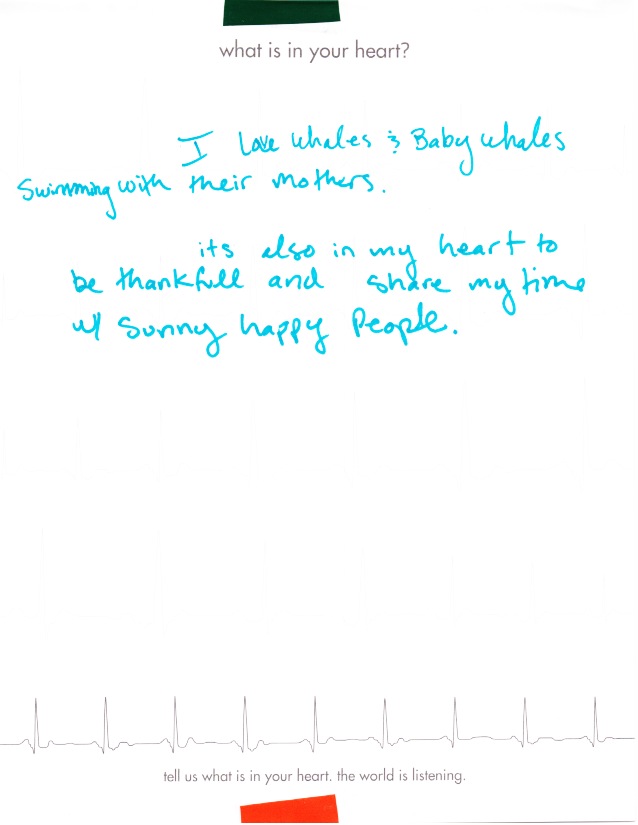 what is in your heart?
I Love whales & Baby whales
Swimming with their mothers.
its also in my heart to
be thankfull and share my time
w/ Sunny happy People.
tell us what is in your heart. the world is listening.